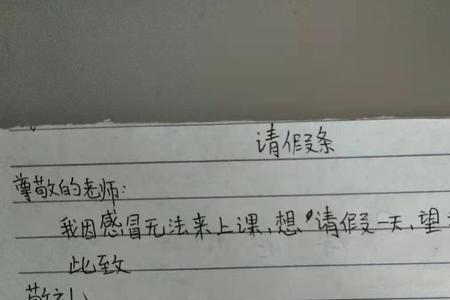 请假条
尊敬的老师:
我因感冒无法来上课,想请假一天,望
此致
敬礼